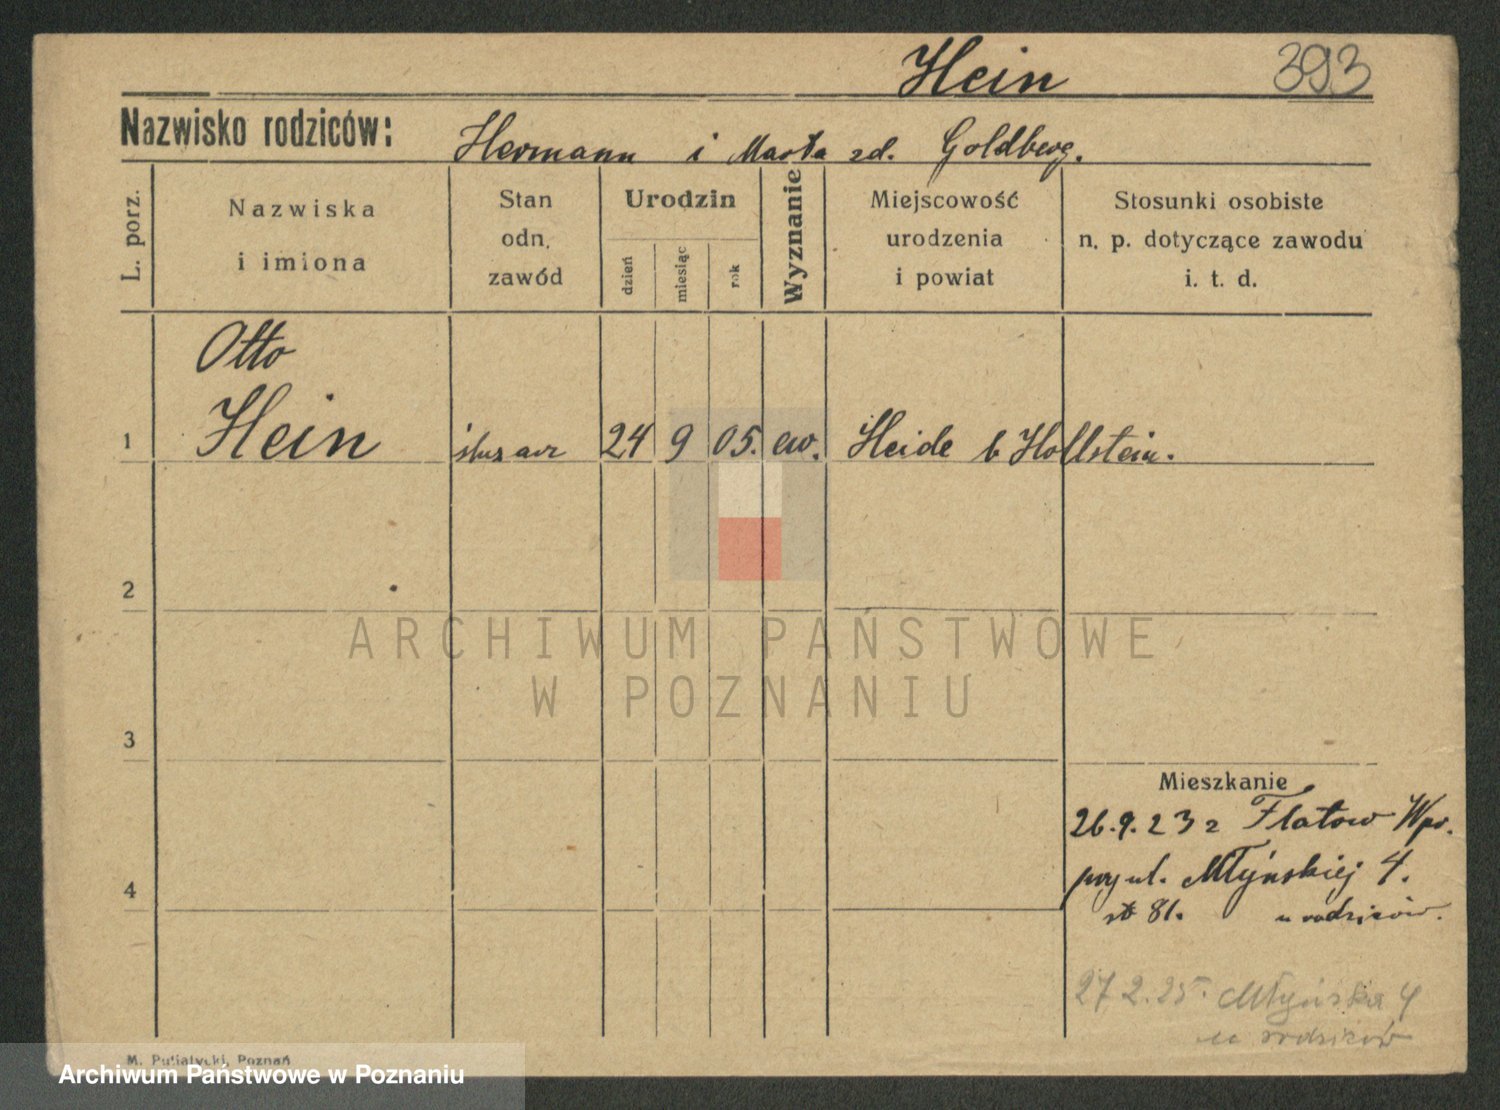 Hein 393
Nazwisko rodziców: Hermann i Marta zd. Goldberg.
L. porz.
Nazwiska
i imiona
Stan
odn.
zawód
Urodzin
dzień
miesiąc
rok
Wyznanie
Miejscowość
urodzenia
i powiat
Stosunki osobiste
n. p. dotyczące zawodu
i. t. d.
Otto
1 Hein ślusarz 24 9 05. ew. Heide b Hollstein.
2
ARCHIWUM PAŃSTWOWE
W POZNANIU
3
Mieszkanie
26.9.23 z Flatow Wpr.
4 przy ul. Młyńskiej 4.
81. u rodziców.
27 2.25. Młyńska 4
u rodziców
M. Putiatycki, Poznań
Archiwum Państwowe w Poznaniu